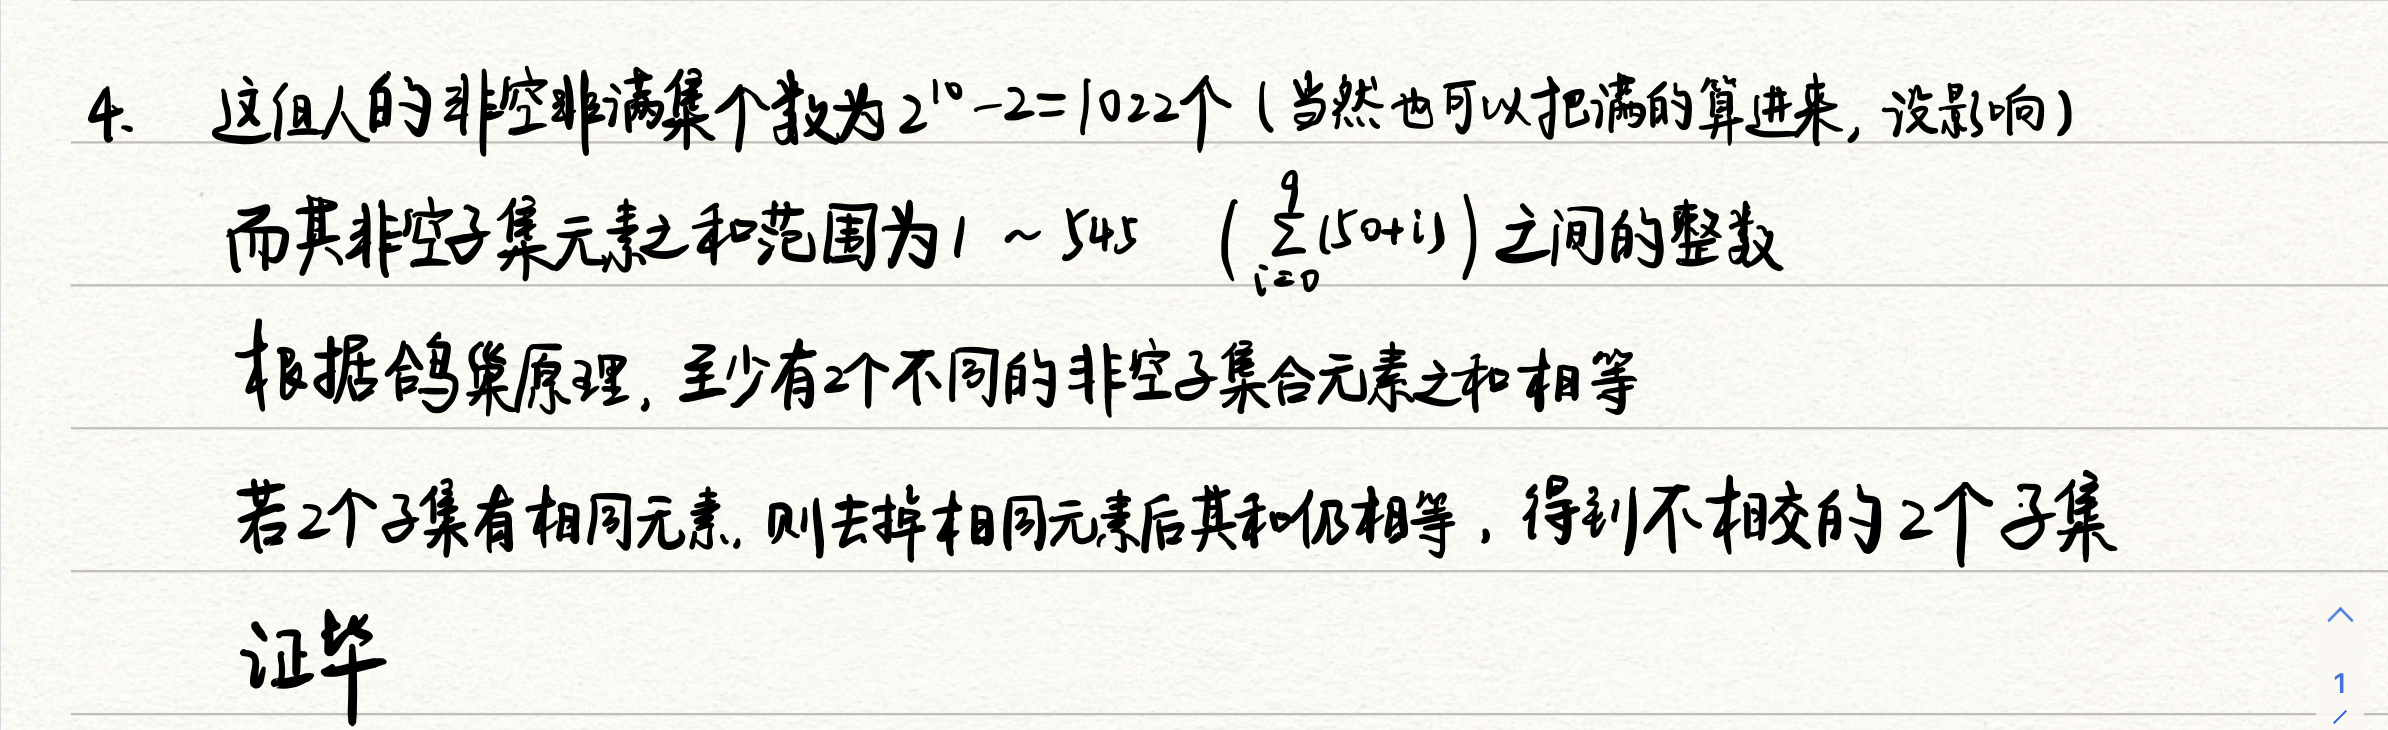 4. 这组人的非空非满集个数为2^10-2=1022个(当然也可以把满的算进来,没影响)
而其非空子集元素之和范围为1 ~ 545 (∑_{i=0}^{9}(50+i))之间的整数
根据鸽巢原理,至少有2个不同的非空子集合元素之和相等
若2个子集有相同元素.则去掉相同元素后其和仍相等,得到不相交的2个子集
证毕
1